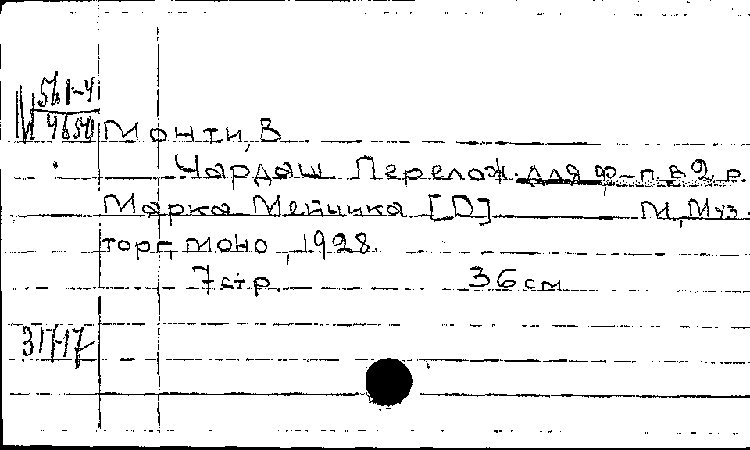 561-4
М 4650
Монти, В
Чардаш Перелож. для ф-п. в 2 р.
Марка Мейчика [D] М, Муз.
торг, моно, 1928.
7 стр. 36 см